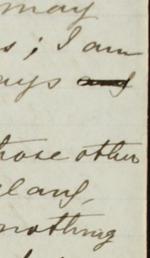 may
s; I am
ays
those other
eland,
nothing